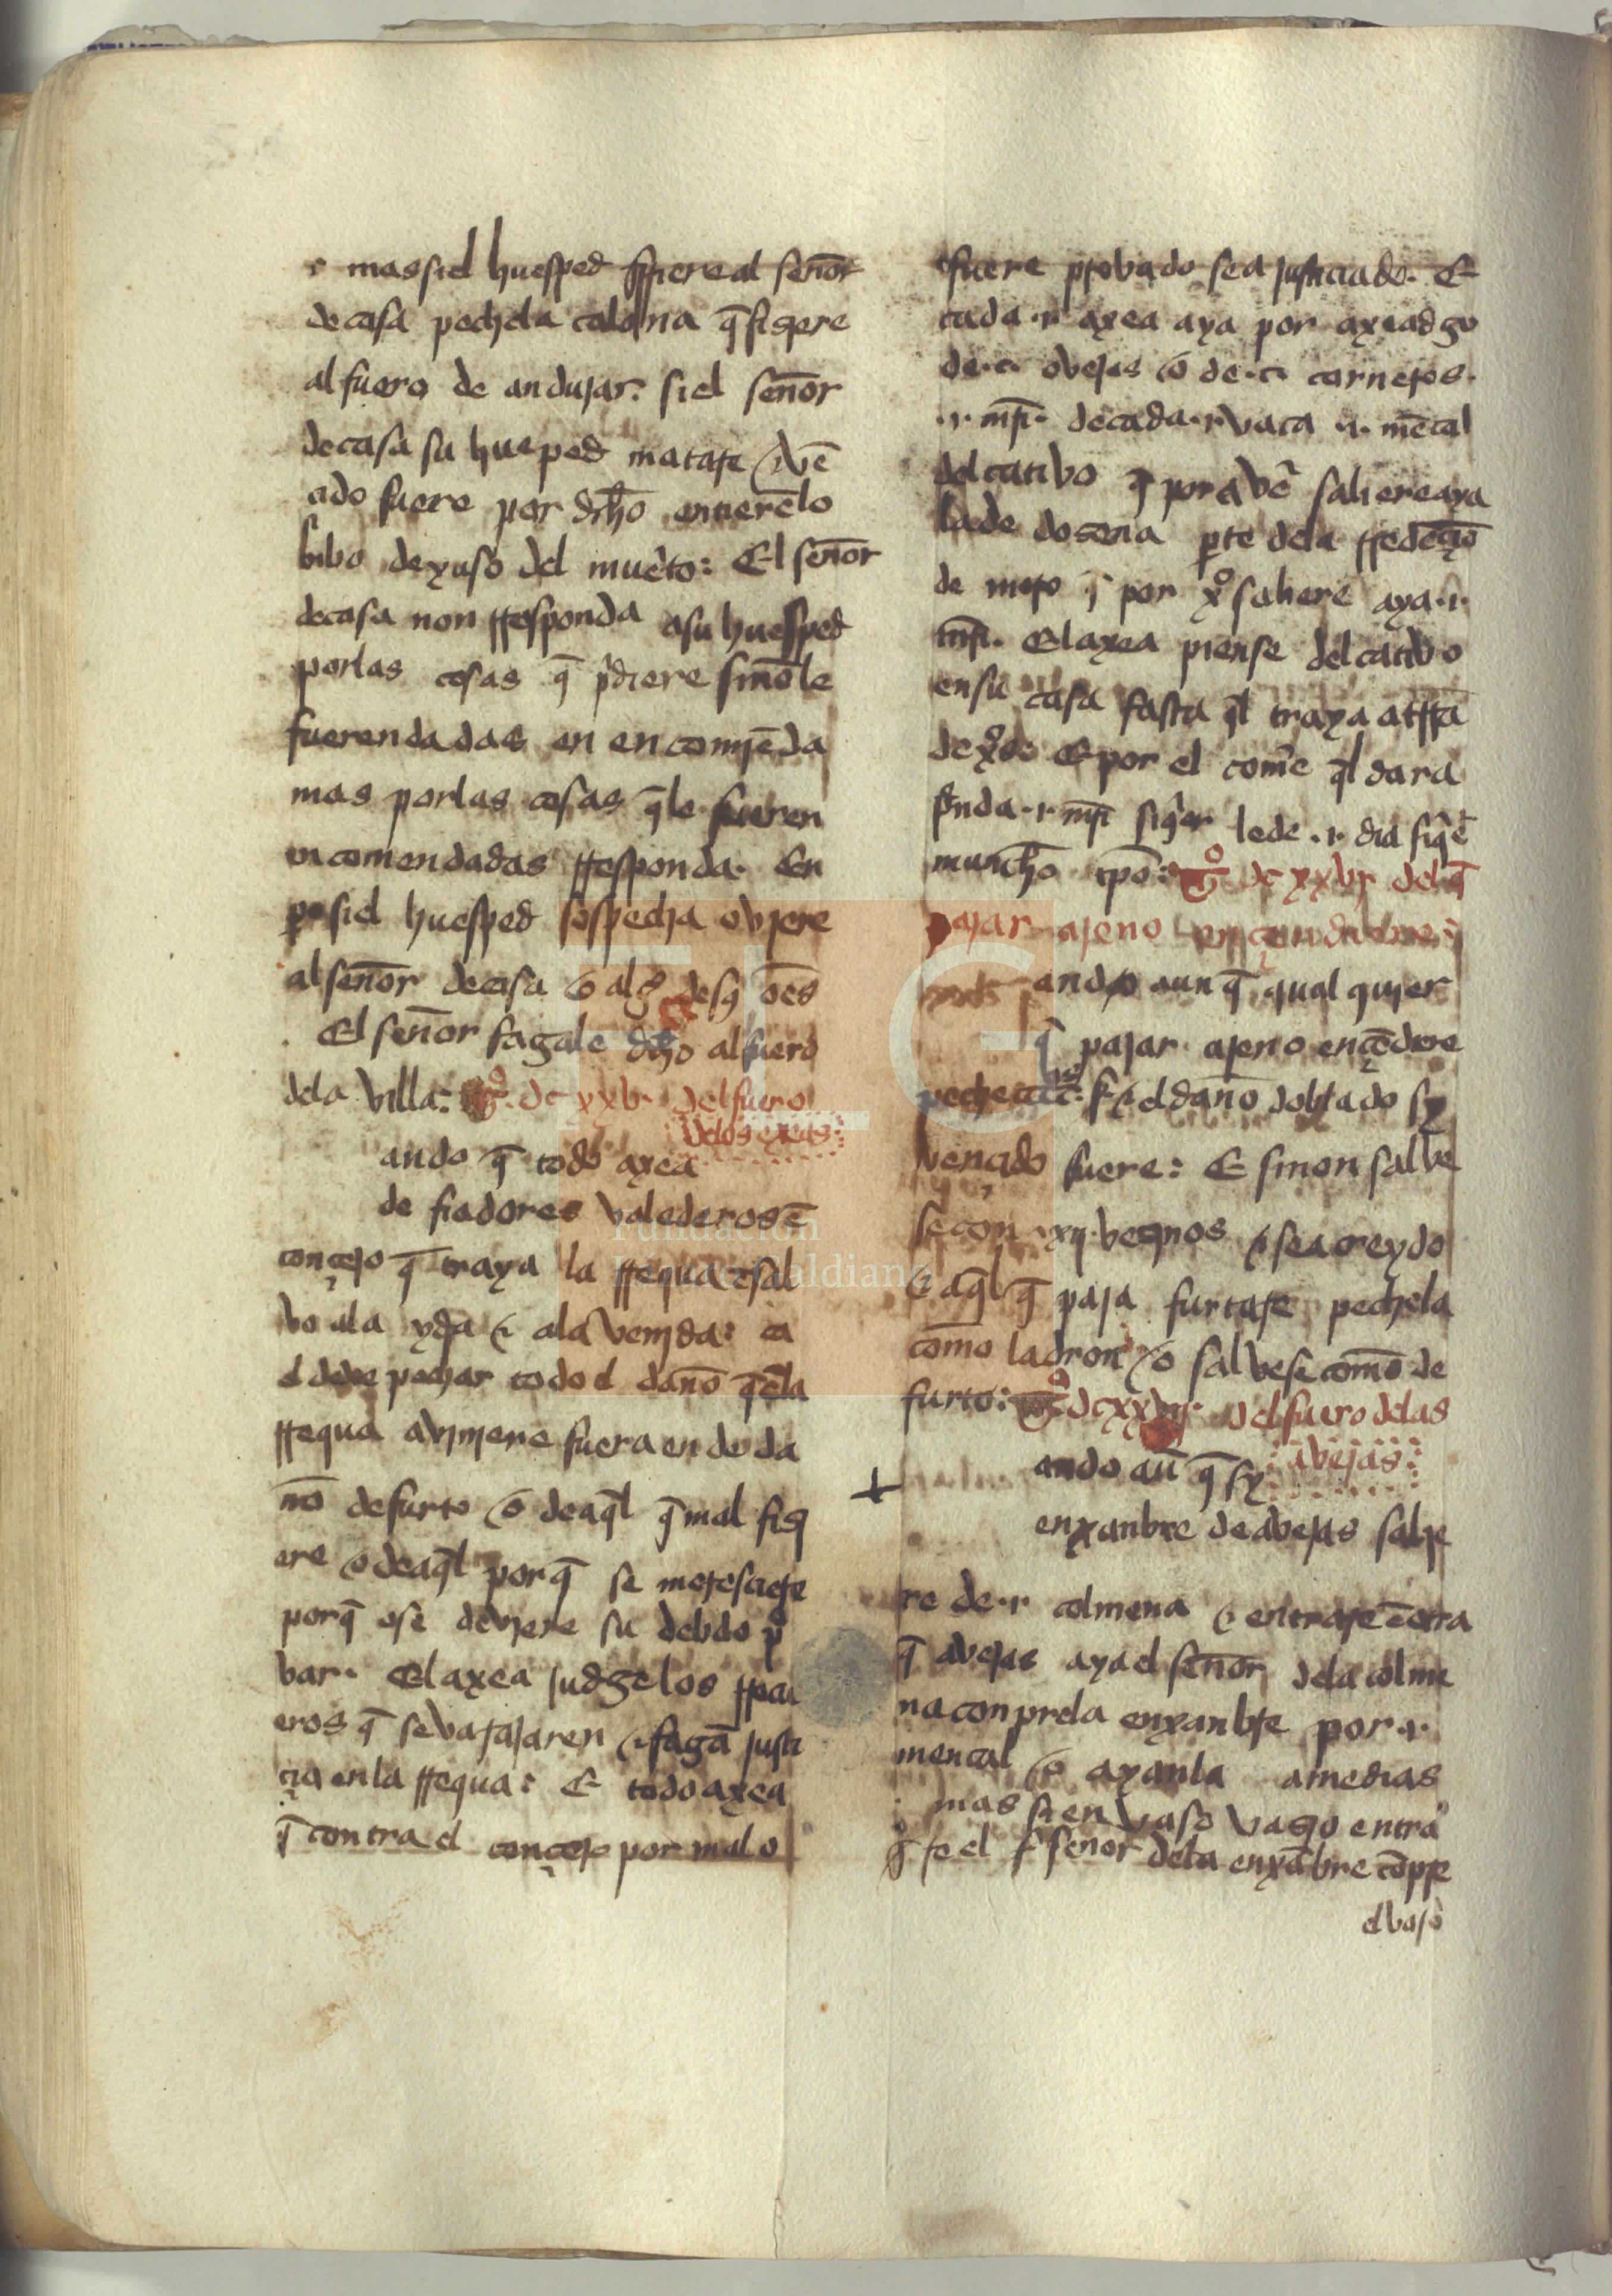 r mas si el huesped ffiere al señor
de casa peche la calonna q̃ fiziere
al fuero de andujar: si el señor
de casa su hueped matare & vẽ
cido fuere por dr̃ho entierẽlo
bibo deyuso del mueto: El señor
de casa non rresponda a su huesped
por las cosas q̃ pdiere sinõ le
fueren dadas en encomjẽda
mas por las cosas q̃ le fueren
encomendadas rresponda. En
po si el huesped sospecha ovjere
al señor de casa o alg de sq̃ oẽs
El señor fagale dr̃ho al fuero
dela villa: tº. dc xxv. del fuero
delos exeas:
ando q̃ todo axea
de fiadores valederos ẽ
conçejo q̃ traya la rrequa ẽ sal
vo ala yda & ala venjda: ca
el deve pechar todo el daño q̃ ẽ la
rrequa avinjere fuera ende da
ño de furto o de aq̃l q̃ mal fizi
ere o de aq̃l por q̃ se metesciere
por q̃ ose devjere su debdo p
bar. El axea judgelos rrecu
eros q̃ se varajaren & fagã justi
çia en la rrequa: E todo axea
q̃ contra el conçejo por malo
fuere provado sea justiciado. E
cada .i. axea aya por axeadgo
de .c. ovejas o de .c. carneros.
.i. mr̃i. de cada .i. vaca .i. mẽcal
del cativo q̃ por avẽ saliere aya
la de dozena pte dela rredẽçiõ
de moro q̃ por xº saliere aya .i.
mr̃i. El axea piense del cativo
en su casa fasta q̃l traya a trrã
de xºs. E por el comẽ q̃l dara
prẽnda .i. mr̃i siq̃er le de .i. dia siq̃ẽ
muncho tpo: tº dc xxvi del q̃
pajar ajeno ençendiere:
ando aun q̃ qual qujer
q̃ pajar ajeno ençẽdiere
peche ccc. s. & el daño doblado sy
vençido fuere: E sinon salve
se con .xij. vezinos & sea creydo
& aq̃l q̃ paja furtare peche la
como ladron o salvese como de
furto: tº dc xxvij. del fuero delas
avejas:
ando aũ q̃ sy
enxanbre de avejas salie
re de .i. colmena & entrare ẽ otra
q̃ avejas aya el señor dela colme
na conpre la enxanbre por .i.
mencal o ayanla a medias
mas si en vaso vazio entra
re el señor dela enxãbre cõpre
el vaso